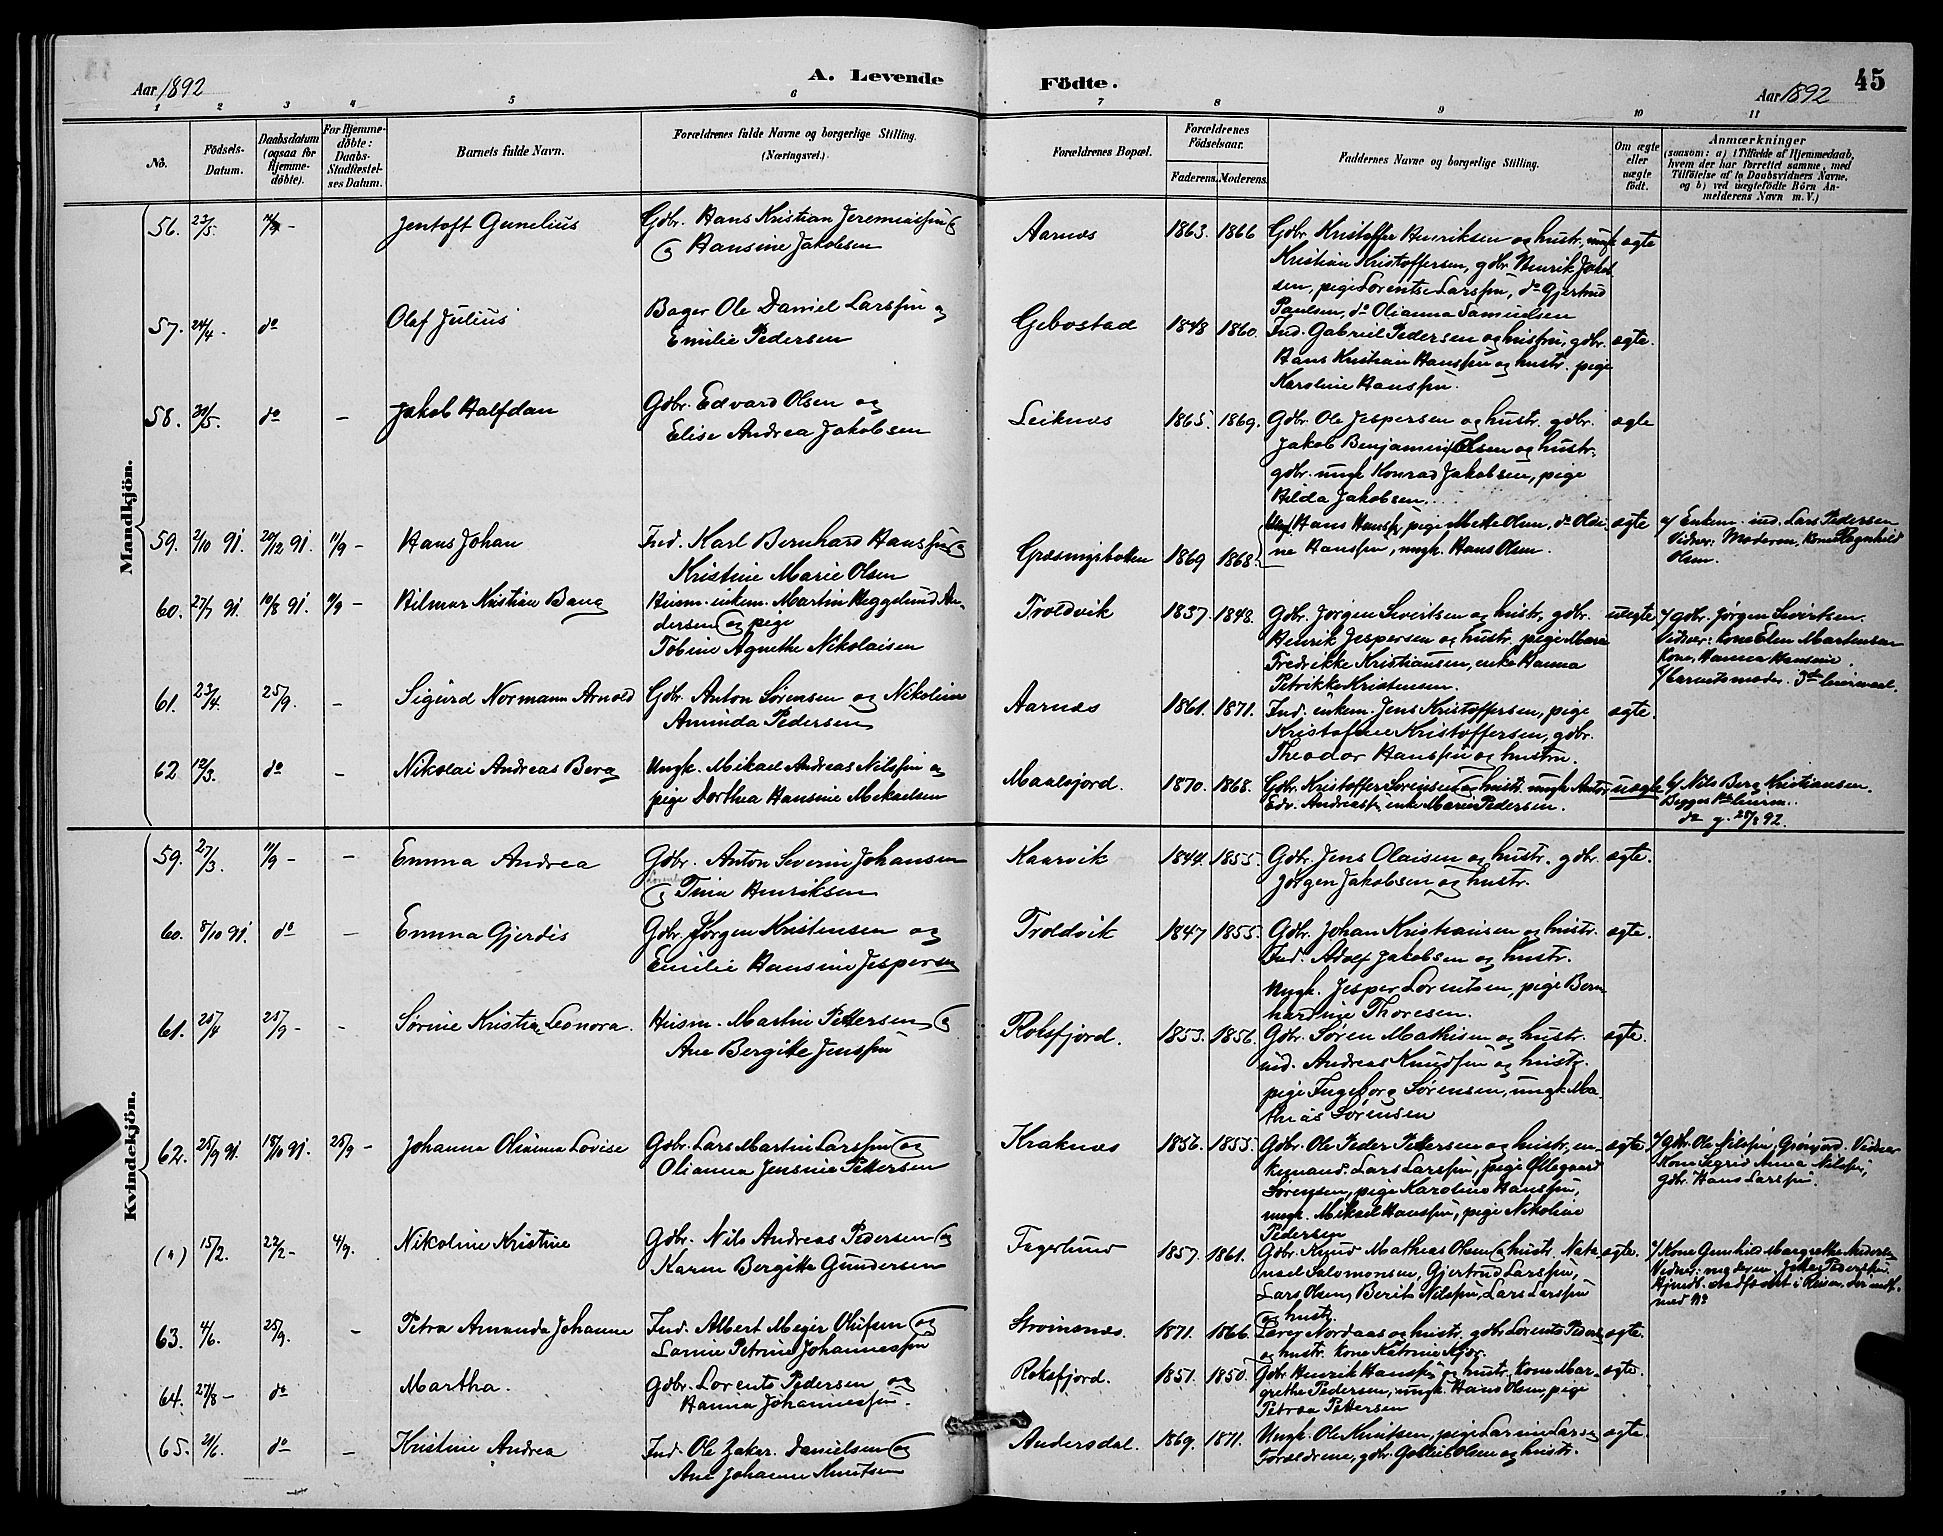 Aar 1892
A. Levende
Födte.
Aar 1892
45
1 2 3 4 5 6 7 8 9 10 11
No.
Födsels-
Datum.
Daabsdatum
(ogsaa for
Hjemme-
döbte).
For Hjemme-
döbte:
Daabs-
Stadfæstel-
ses Datum.
Barnets fulde Navn.
Forældrenes fulde Navne og borgerlige Stilling.
(Næringsvei.)
Forældrenes Bopæl.
Forældrenes
Födselsaar.
Faderens. Moderens.
Faddernes Navne og borgerlige Stilling.
Om ægte
eller
uægte
født.
Anmærkninger
(saasom: a) i Tilfælde af Hjemmedaab,
hvem der har forrettet samme, med
Tilföielse af to Daabsvidners Navne,
og b) ved uægtefödte Börn An-
melderens Navn m. V.)
Mandkjön.
56. 23/5. Jentoft Gunelius
Gdbr. Hans Kristian Jeremiassen
og Hansine Jakobsen
Aarnæs 1863. 1866
Gdbr. Kristoffer Henriksen og hustr., ungk. ægte
Kristian Kristoffersen, gdbr. Henrik Jakob
sen, pige Lorentse Larssen, do Gjertrud
Paulsen, do Olianna Samuelsen
57. 24/4. do Olaf Julius
Bager Ole Daniel Larssen og
Emilie Pedersen
Gebostad 1848 1860.
Ind. Gabriel Pedersen og hustru, gdbr. ægte.
Hans Kristian Hanssen og hustr. pige
Karoline Hanssen.
58. 30/5. do - Jakob Halfdan
Gdbr. Edvard Olsen og
Elise Andrea Jakobsen
Leiknæs 1865. 1869.
Gdbr. Ole Jespersen og hustr. gdbr. ægte
Jakob Benjamin Olsen og hustr.
gdbr. ungk. Konrad Jakobsen, pige
Hilda Jakobsen.
59. 2/10 91. 20/12 91. 11/9 - Hans Johan
Ind. Karl Bernhard Hanssen og
Kristine Marie Olsen
Græsmyrbotten 1869 1868.
Ungk. Hans Hanss., pige Mette Olsen, do Oldi- ægte
ne Hanssen, ungk. Hans Olsen.
a/ Enkem. ind. Lars Pedersen
Vidner: Moderen, kone Ragnhild
Olsen.
60. 27/7 91. 10/8 91. 11/9 - Hilmar Kristian Bang
Husm. enkem. Martin Heggelund An-
dersen og pige
Tobine Agnethe Nikolaisen
Troldvik 1837. 1848.
Gdbr. Jørgen Sivertsen og hustr., gdbr. uægte
Henrik Jespersen og hustr. pige Maren
Fredrikke Kristiansen, enke Hanna
Petrikke Kristensen.
a/ gdbr. Jørgen Sivertsen.
Vidner: kone Elen Martensen
Kone Hanna Hansine.
b/ barnets moder. 3de leiermaal.
61. 23/4. 25/9. - Sigurd Normann Arnold
Gdbr. Anton Sørensen og Nikoline
Aminda Pedersen
Aarnæs 1861. 1871.
Ind. enkem. Jens Kristoffersen, pige ægte.
Kristofine Kristoffersen, gdbr.
Theodor Hanssen og hustru.
62 12/3. do - Nikolai Andreas Berg
Ungk. Mikael Andreas Nilssen og
pige Dorthea Hansine Mikaelsen
Maalsjord. 1870. 1868.
Gdbr. Kristoffer Sørensen og hustr. ungk. Anton uægte
Edv. Andreass., enke Marie Pedersen.
b/ Nils Berg Kristiansen.
Begges 1ste leierm.
do g. 28/8 92.
Kvindekjön.
59. 27/3. 11/9 - - Emma Andrea
Gdbr. Anton Severin Johansen
og Tina Henriksen
Kaarvik 1844. 1855.
Gdbr. Jens Olaisen og hustr. gdbr. ægte.
Jørgen Jakobsen og hustr.
60. 8/10 91. do - Emma Gjerdis
Gdbr. Jørgen Kristensen og
Emilie Hansine Jespersen
Troldvik 1847 1855.
Gdbr. Johan Kristiansen og hustr. ægte.
Ind. Adolf Jakobsen og hustr.
Ungk. Jesper Lorentsen, pige Bern
hardine Thoresen.
61. 25/4 25/9 - - Sørine Kristia Leonora.
Husm. Martin Pettersen og
Ane Bergitte Jenssen
Roksfjord. 1853. 1856.
Gdbr. Søren Mathisen og hustr. ægte.
ind. Andreas Knudsen og hustr.
pige Ingeborg Sørensen, ungk. Ma
thias Sørensen
62. 25/9 91. 18/10 91. 25/9 - Johanna Olianna Lovise
Gdbr. Lars Martin Larssen og
Olianna Jensine Pettersen
Kraknæs 1856. 1855.
Gdbr. Ole Peder Pettersen og hustr., en- ægte.
kemand Lars Larssen, pige Øllegaard
Sørensen, pige Karoline Hanssen,
ungk. Mikael Hanssen, pige Nikoline
Pedersen
a/ gdbr. Ole Nilssen, Grønjord. Vidner
Kone Sigrid Anna Nilssen,
gdbr. Hans Larssen.
15/2. 22/2 - 4/9. Nikoline Kristine
Gdbr. Nils Andreas Pedersen og
Karen Bergitte Gundersen
Fagerlund 1857. 1861.
Gdbr. Knud Mathias Olsen og hustr. Nata- ægte.
nael Salomonsen, Gjertrud Larssen,
Lars Olsen, Berit Nilssen, Lars Larssen
og hustr.
a/ Kone Gunhild Margrethe Andersen
63. 4/6. 25/9. - Petra Amanda Johanne
Ind. Albert Meyer Olufsen og
Larine Petrine Johannessen
Stromnæs. 1871. 1866.
Lærer Nordaas og hustr. gdbr. Lorents Peders. ægte.
og hustr. kone Katrine
64. 27/8 - do Martha.
Gdbr. Lorents Pedersen og
Hanna Johannessen.
Roksfjord. 1851. 1850.
Gdbr. Henrik Hanssen og hustr. kone Mar- ægte.
grethe Pedersen, ungk. Hans Olsen, pige
Petrea Pettersen
65. 21/6. do - Kristine Andrea
Ind. Ole Zakar. Danielsen og
Ane Johanne Knutsen
Andersdal. 1869. 1871.
Ungk. Ole Knutsen, pige Larine Larsen ægte.
Forældrene, gdbr. Gotlieb Olsen og hustr.